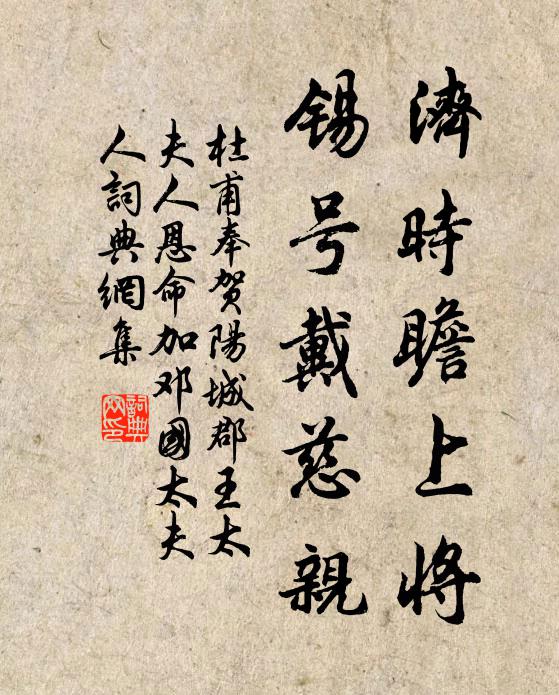 濟時瞻上將
锡号戴慈親
杜甫奉贺陽城郡王太
夫人恩命加邓國太夫
人詞典網集
詞典网印